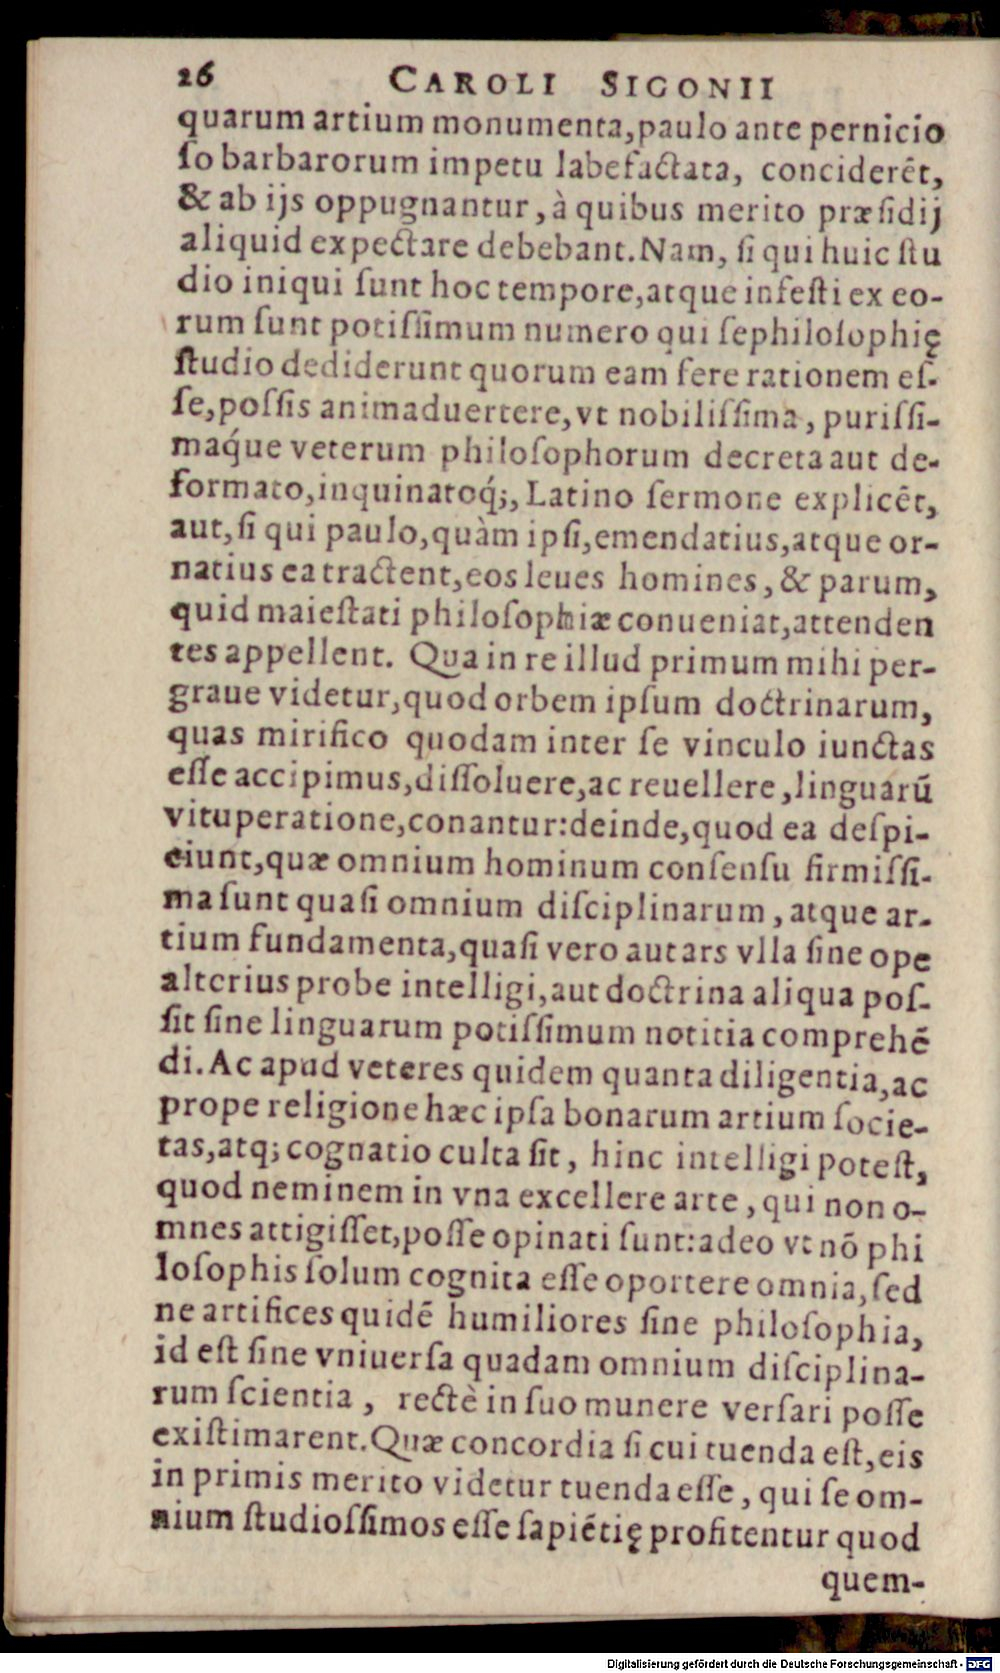 26 CAROLI SIGONII
quarum artium monumenta,paulo ante pernicio
ſo barbarorum impetu labefactata, conciderēt,
& ab ijs oppugnantur, à quibus merito præſidij
aliquid expectare debebant. Nam, ſi qui huic ſtu
dio iniqui ſunt hoc tempore,atque infeſti ex eo-
rum ſunt potiſſimum numero qui ſephiloſophię
ſtudio dediderunt quorum eam fere rationem eſ-
ſe,poſſis animaduertere,vt nobiliſſima, puriſſi-
maq́ue veterum philoſophorum decreta aut de-
formato,inquinatoq́;, Latino ſermone explicēt,
aut, ſi qui paulo,quàm ipſi,emendatius,atque or-
natius ea tractent,eos leues homines, & parum,
quid maieſtati philoſophiæ conueniat,attenden
tes appellent. Qua in re illud primum mihi per-
graue videtur,quod orbem ipſum doctrinarum,
quas mirifico quodam inter ſe vinculo iunctas
eſſe accipimus,diſſoluere,ac reuellere,linguarū
vituperatione,conantur:deinde,quod ea deſpi-
ciunt,quæ omnium hominum conſenſu firmiſſi-
ma ſunt quaſi omnium diſciplinarum, atque ar-
tium fundamenta,quaſi vero aut ars vlla ſine ope
alterius probe intelligi,aut doctrina aliqua poſ-
ſit ſine linguarum potiſſimum notitia comprehē
di. Ac apud veteres quidem quanta diligentia,ac
prope religione hæc ipſa bonarum artium ſocie-
tas,atq; cognatio culta ſit, hinc intelligi poteſt,
quod neminem in vna excellere arte, qui non o-
mnes attigiſſet,poſſe opinati ſunt:adeo vt nō phi
loſophis ſolum cognita eſſe oportere omnia, ſed
ne artifices quidē humiliores ſine philoſophia,
id eſt ſine vniuerſa quadam omnium diſciplina-
rum ſcientia, rectè in ſuo munere verſari poſſe
exiſtimarent. Quæ concordia ſi cui tuenda eſt, eis
in primis merito videtur tuenda eſſe, qui ſe om-
nium ſtudioſſimos eſſe ſapiētię profitentur quod
quem-
Digitalisierung gefördert durch die Deutsche Forschungsgemeinschaft - DFG